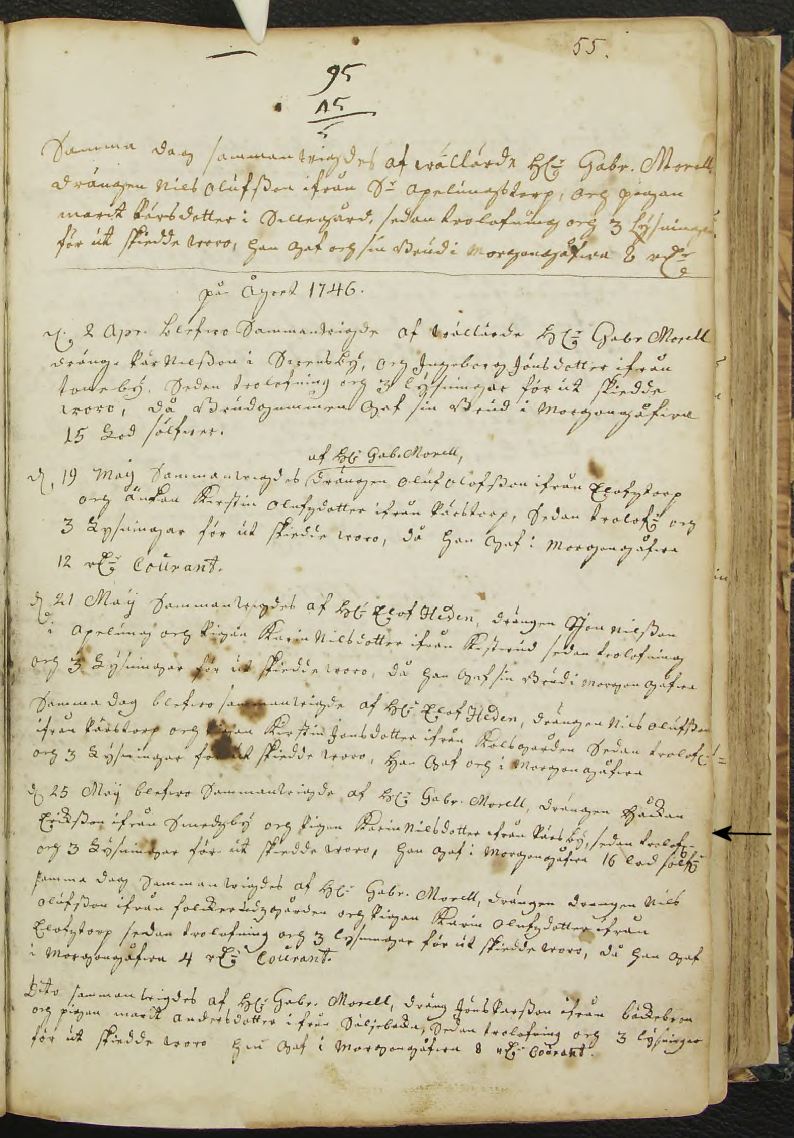 55.
95
15
5
Samma dag sammanwigdes af wällärde H:r Gabr. Morell
drängen Nils Olufsson ifrån S:r Apelungstorp, och pigan
marit Pärsdotter i Sillegård, sedan trolofning och 3 Lysningar
för ut skiedde woro, han gaf och sin Brud i Morgongåfwa 8
på Åhret 1746.
d. 2 Apr. blefwo Sammanwigde af wällärde H:r Gabr Morell
dräng. Pär Nilsson i och Ingeborg Jonsdotter ifrån
toneby. Sedan trolofning och 3 lysningar för ut skiedde
woro, då Brudgummen gaf sin Brud i Morgongåfwa
15 Lod sölfwer.
af H:r Gab. Morell,
d. 19 Maij Sammanwigdes drängen Oluf Olofsson ifrån Elofztorp
och änkan Kirstin Olufzdotter ifrån Pärstorp, Sedan trolof: och
3 Lysningar för ut skiedde woro, då han gaf i Morgongåfwa
12 Courant.
d. 21 Maij Sammanwigdes af H:r Elof Heden, drängen Jon Nilsson
i Apelung och Pigan Karin Nilsdotter ifrån sedan trolofning
och 3 Lysningar för ut skiedde woro, då han gaf sin Brud i Morgongåfwa
Samma dag blefwo sammanwigde af H:r Elof Heden, drängen Nils Olufsson
ifrån Pärstorp och Pigan Kirstin Jonsdotter ifrån Kolsgården Sedan trolof:
och 3 Lysningar för ut skiedde woro, han gaf och i Morgongåfwa
d. 25 Maij blefwo Sammanwigde af H:r Gabr. Morell, drängen Håckan
Ericksson ifrån Smedzby och Pigan Karin Nilsdotter ifrån Pärsby, sedan trolof:
och 3 Lysningar för ut skiedde woro, han gaf i Morgongåfwa 16 lod sölf:
samma dag Sammanwigdes af H:r Gabr. Morell, drängen drengen Nils
Olufsson ifrån och Pigan Karin Olufzdotter ifrån
Elofztorp sedan trolofning och 3 lysningar för ut skiedde woro, då han gaf
i Morgongåfwa 4 Courant.
Dito sammanwigdes af H:r Gabr. Morell, dräng Jöns Parsson ifrån bäckebron
och pigan marit Andersdotter ifrån Säljebacka, Sedan trolofning och 3 lysningar
för ut skiedde woro han gaf i Morgongåfwa 8 Courant.